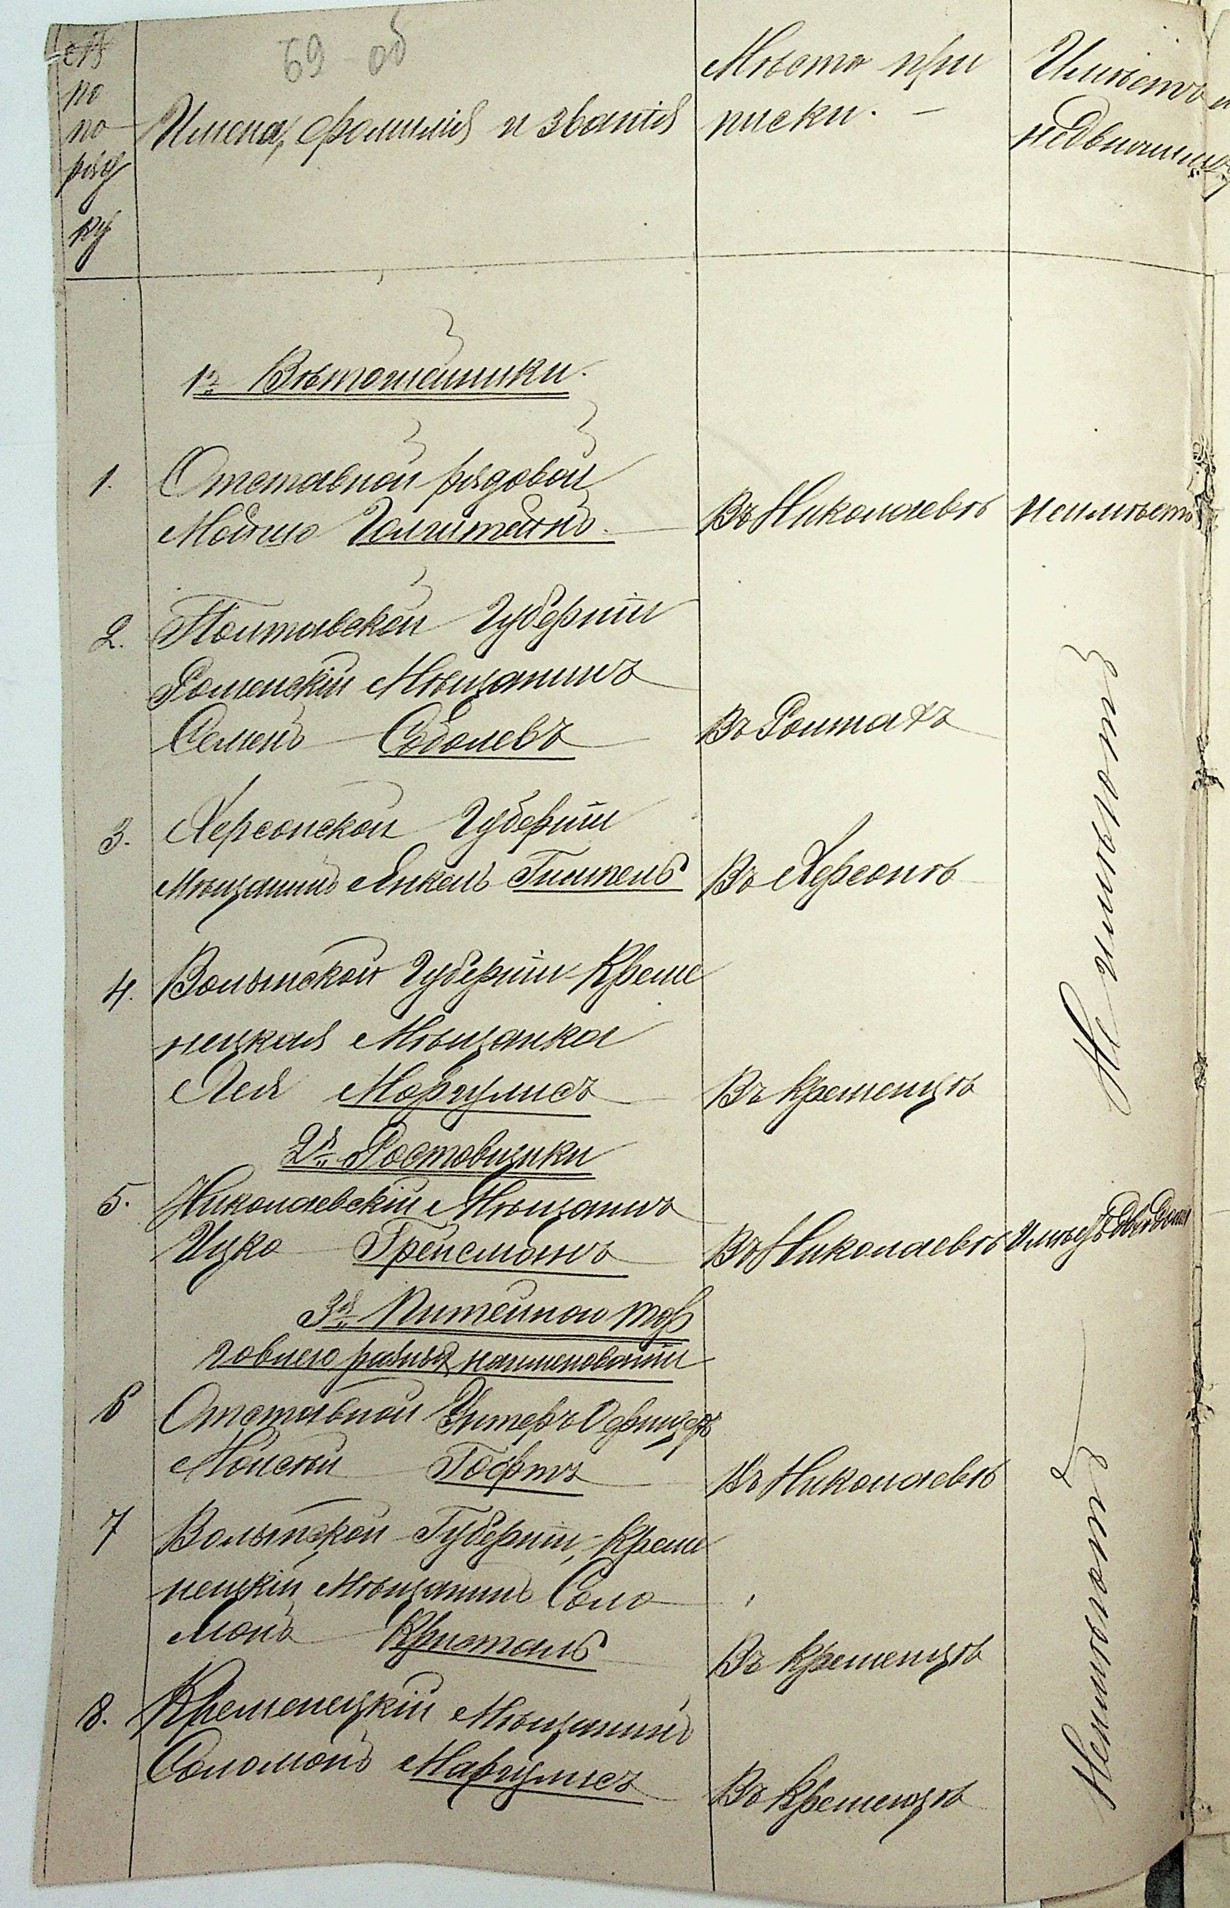 69 об
№ по порядку
Имена, фамилия и звания
Место при
писки.
Имеетъ и
недвижим
1я Ветошники.
1. Отставной рядовой
Мошко
Въ Николаевѣ
неимѣетъ
2. Полтавской Губерніи
Роменскій Мѣщанинъ
Семенъ Соболевъ
Въ Ромнахъ
3. Херсонской Губерніи
Мѣщанинъ Янкель
Въ Херсонѣ
Не имѣютъ
4. Волынской Губерніи Креме
нецкая Мѣщанка
Лея Маргулисъ
Въ Кременцѣ
2я Ростовщики
5. Николаевскій Мѣщанинъ
Ицко Грейсманъ
Въ Николаевѣ
3я Питейной тор
говлею разныхъ наименованій
6 Отставной Унтеръ Офицеръ
Моисей
Въ Николаевѣ
7 Волынской Губерніи, Креме
нецкій Мѣщанинъ Соло
монъ Кристаль
Въ Кременцѣ
Неимѣютъ
8. Кременецкій Мѣщанинъ
Соломонъ Маргулисъ
Въ Кременцѣ